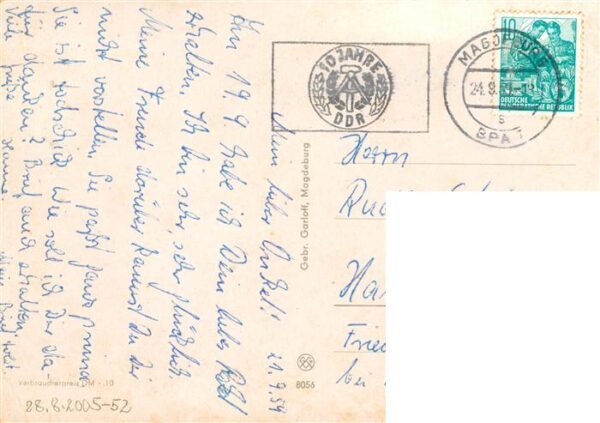 Mein lieber Onkel! 21.9.59
Am 19.9. habe ich Dein liebes
erhalten. Ich bin sehr, sehr glücklich.
Meine Freude darüber kannst Du Dir
nicht vorstellen. Sie paßt ganz prima
Sie ist todschick. Wie soll ich Dir da
für danken? Brief auch erhalten.
Viele Grüße
Hanna
10 JAHRE
DDR
MAGDEBURG
24.9.59
BPA
10
DEUTSCHE
DEMOKRATISCHE REPUBLIK
Herrn
Ha
Fried
bei
Gebr. Garloff, Magdeburg
8056
Verbraucherpreis DM -.10
28.8.2005-52